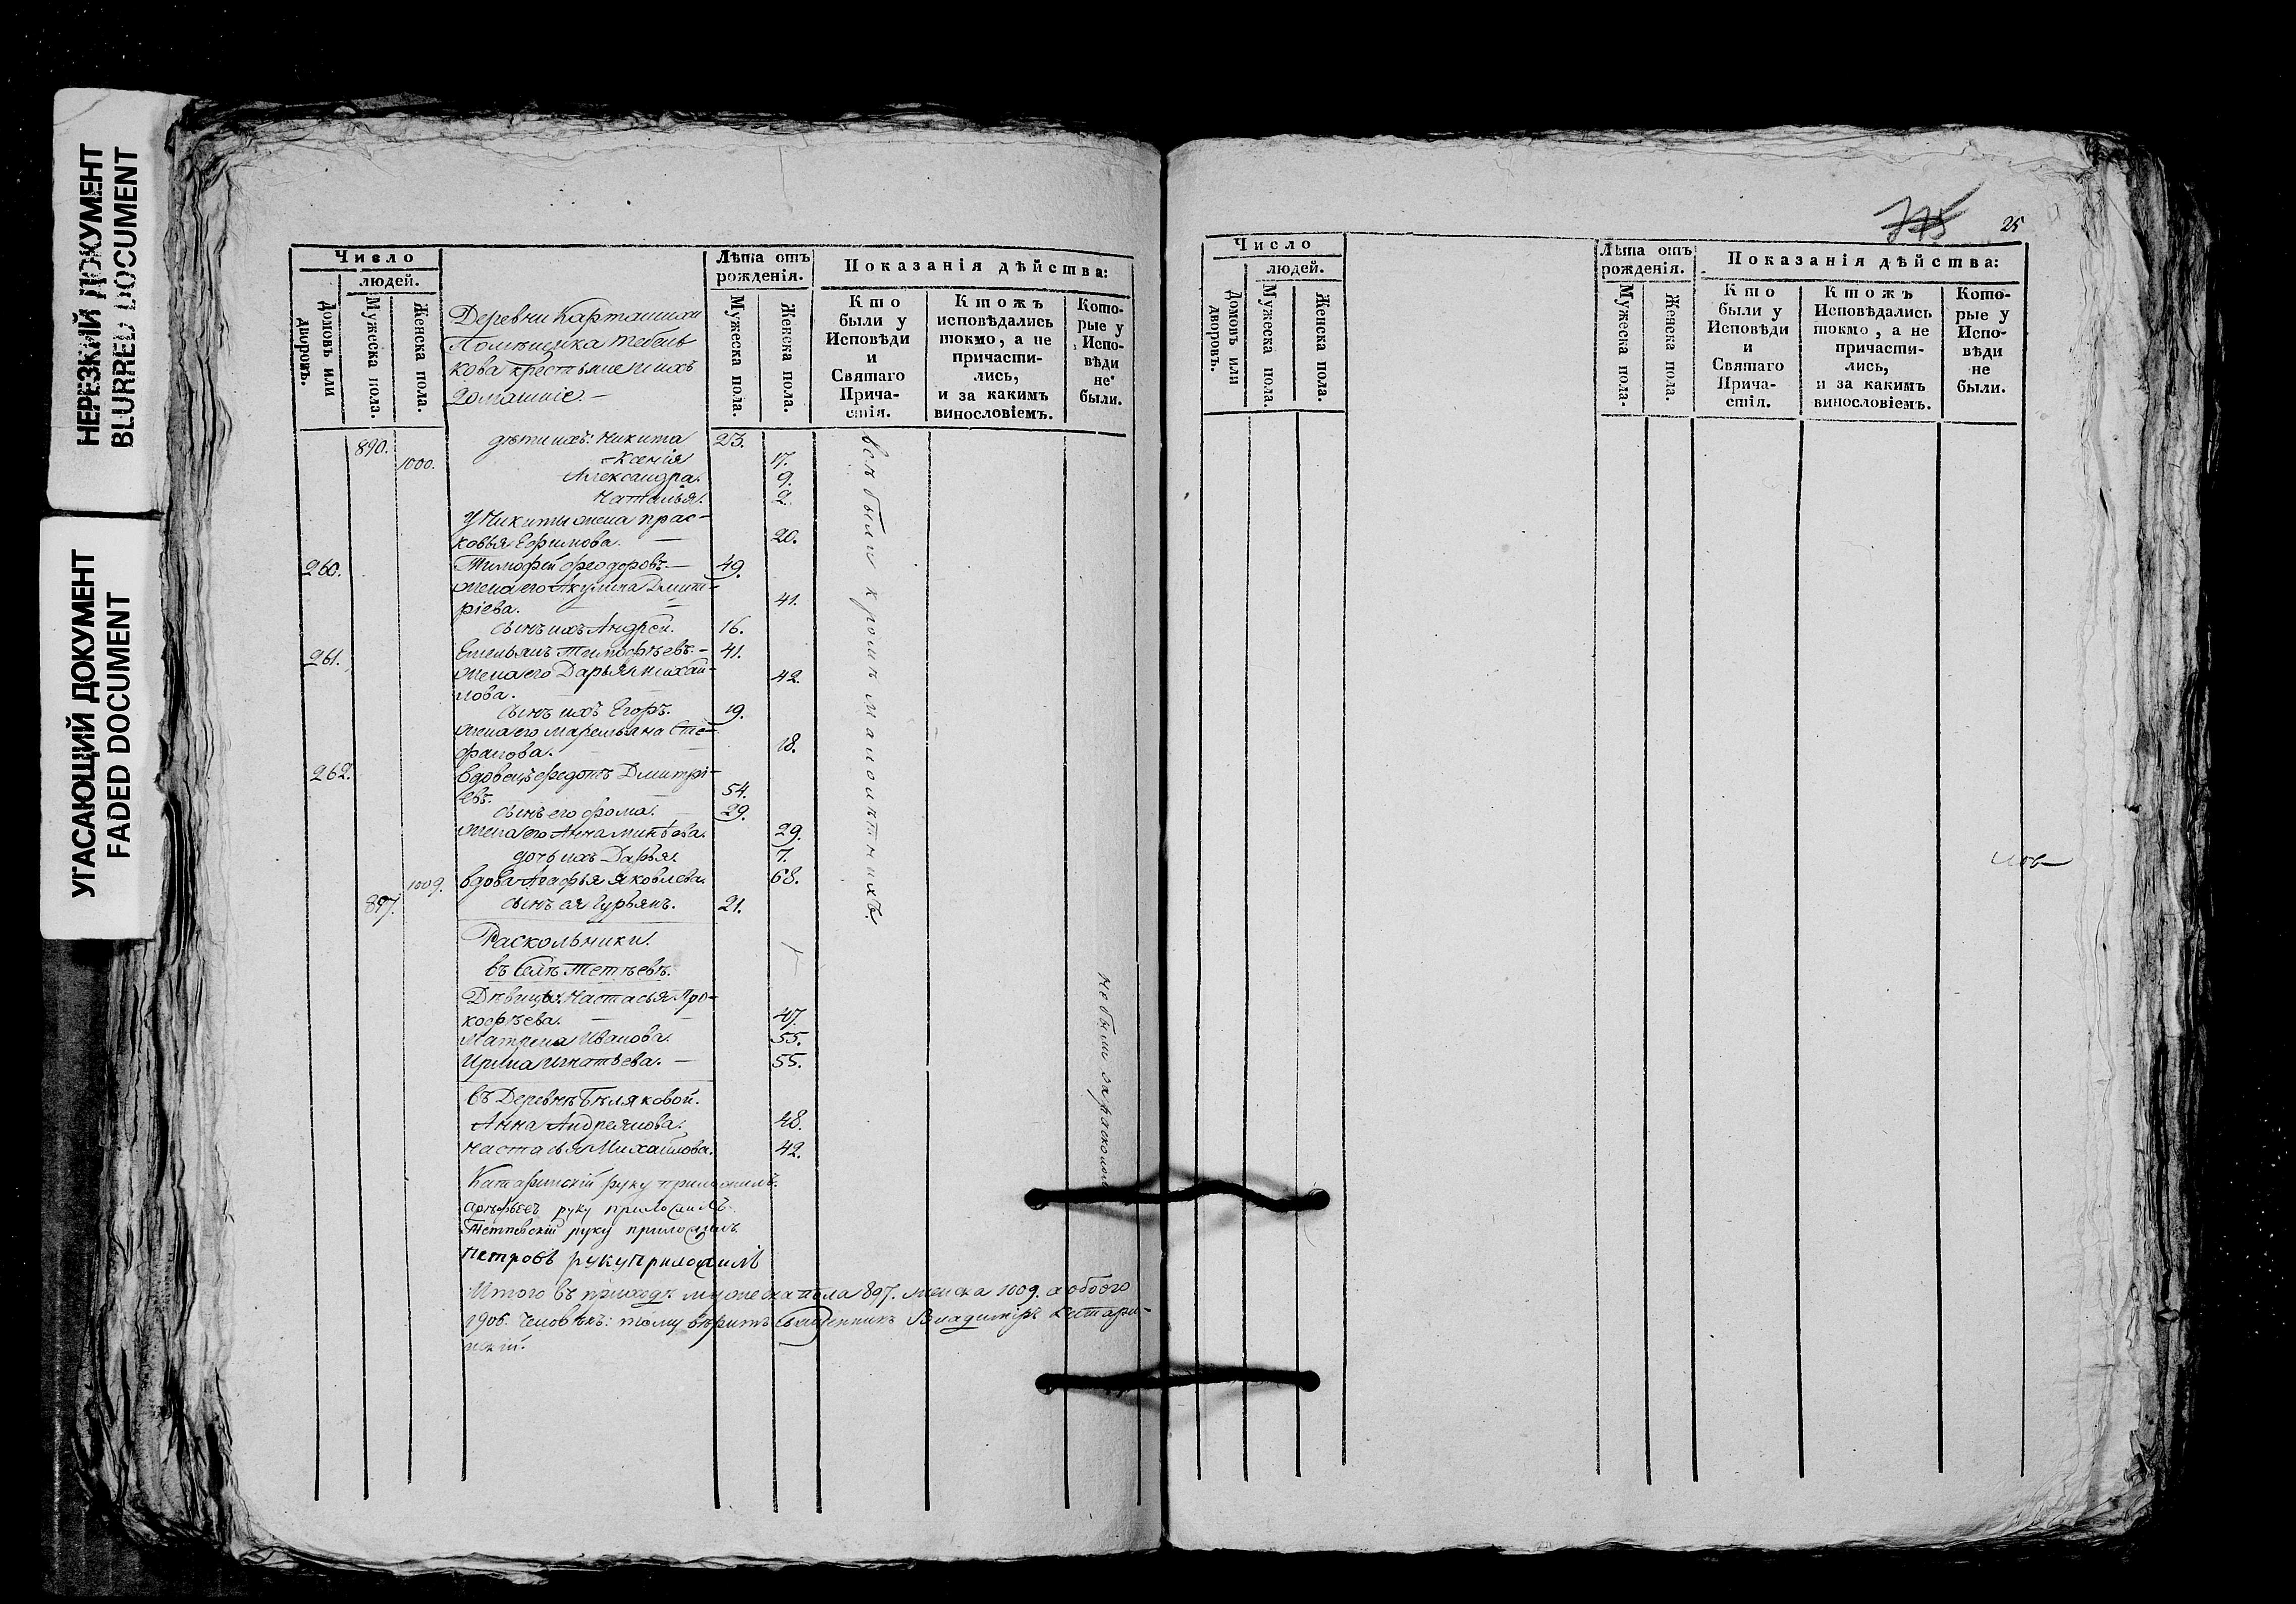 НЕРЕЗКИЙ ДОКУМЕНТ
BLURRED DOCUMENT
УГАСАЮЩИЙ ДОКУМЕНТ
FADED DOCUMENT
Число
людей.
Домовъ или дворовъ.
Мужеска пола.
Женска пола.
Деревни Карташихи
Помѣщика Тебень
кова крестьяне и ихъ
домашніе.
Лѣта отъ
рожденія.
Мужеска пола.
Женска пола.
Показанія дѣйства:
Кто
были у
Исповѣди
и
Святаго
Прича-
стія.
Ктожъ
исповѣдались
токмо, а не
причасти-
лись,
и за какимъ
винословіемъ.
Кото-
рые у
Испо-
вѣди
не
были.
890. дѣти ихъ: Никита 23.
1000. Ксенія 17.
Александра. 9.
Наталья. 2.
У Никиты жена Прас-
ковья Ефимова. 20.
260. Тимофей Феодоровъ. 49.
жена его Акулина Дмит-
ріева. 41.
сынъ ихъ Андрей. 16.
261. Емельянъ Тимофѣевъ. 41.
жена его Дарья Михай-
лова. 42.
сынъ ихъ Егоръ. 19.
жена его Маремьяна Сте-
фанова. 18.
262. вдовецъ Федотъ Дмитрі-
евъ. 54.
сынъ его Фома. 29.
жена его Анна 29.
дочь ихъ Дарья. 7.
1009. вдова Агафья Яковлева. 68.
897. сынъ ея Гурьянъ. 21.
всѣ были кромѣ малолѣтнихъ.
Раскольники.
въ Селѣ Тетѣевѣ.
Дѣвицы: Настасья Про-
кофѣева. 47.
Матрена Иванова. 55.
Ирина Игнатьева. 55.
въ Деревнѣ Бѣляковой.
Анна Андреянова. 48.
Настасья Михайлова. 42.
не были за расколомъ
руку приложилъ.
руку приложилъ
руку приложилъ
Петровъ руку приложилъ
Итого въ приходѣ мужеска пола 897. женска 1009. а обоего
1906. человѣкъ: тому вѣритъ Священникъ Владимиръ
775
25
Число
людей.
Домовъ или дворовъ.
Мужеска пола.
Женска пола.
Лѣта отъ
рожденія.
Мужеска пола.
Женска пола.
Показанія дѣйства:
Кто
были у
Исповѣди
и
Святаго
Прича-
стія.
Ктожъ
Исповѣдались
токмо, а не
причасти-
лись,
и за какимъ
винословіемъ.
Кото-
рые у
Испо-
вѣди
не
были.